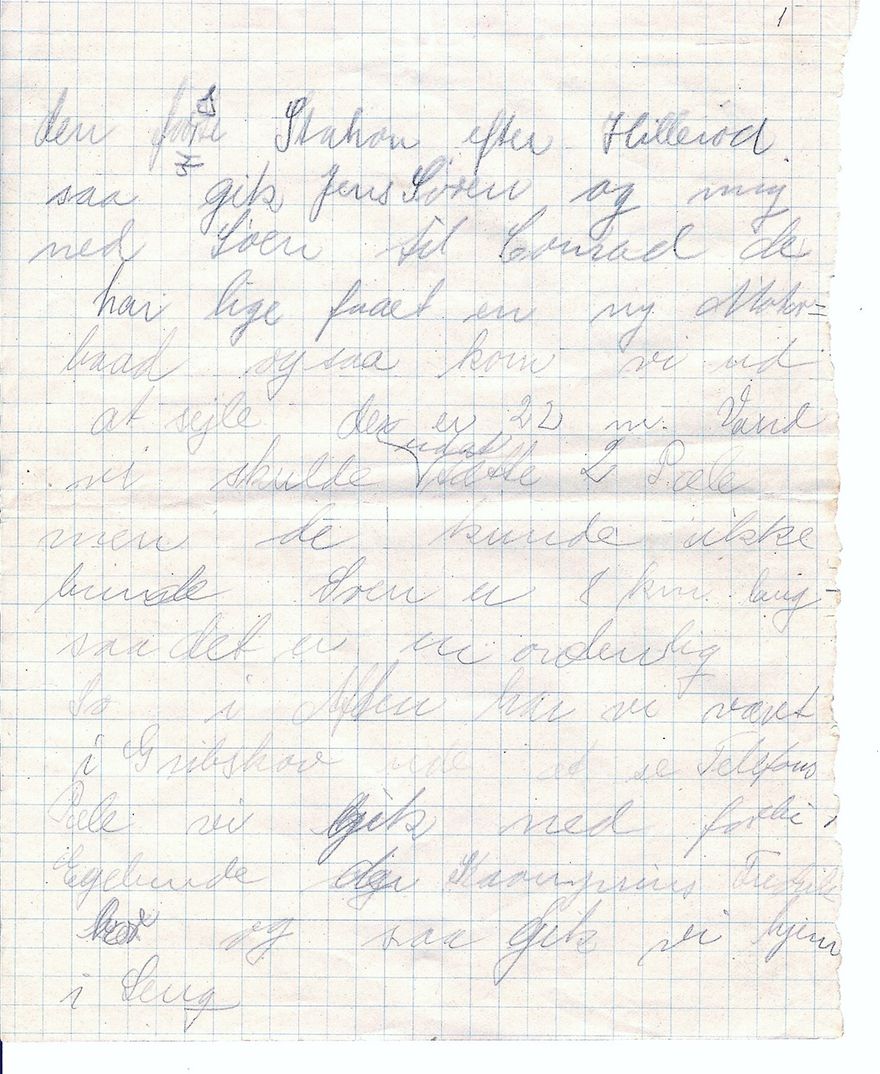 1
den første Station efter Hillerød
saa gik Jens Søren og mig
ned Søen til Conrad de
har lige faaet en ny Motor=
baad og saa kom vi ud
at sejle der er 22 m. Vand
udad
vi skulde sætte 2 Pæle
men de kunde ikke
bunde Søen er 8 km lang
saa det er en ordenlig
Sø i Aften har vi været
i Gribskov ude at se Telefons
Pæle vi gik ned forbi
Egelunde der Kronprins Fredrik
bor og saa Gik vi hjem
i Seng